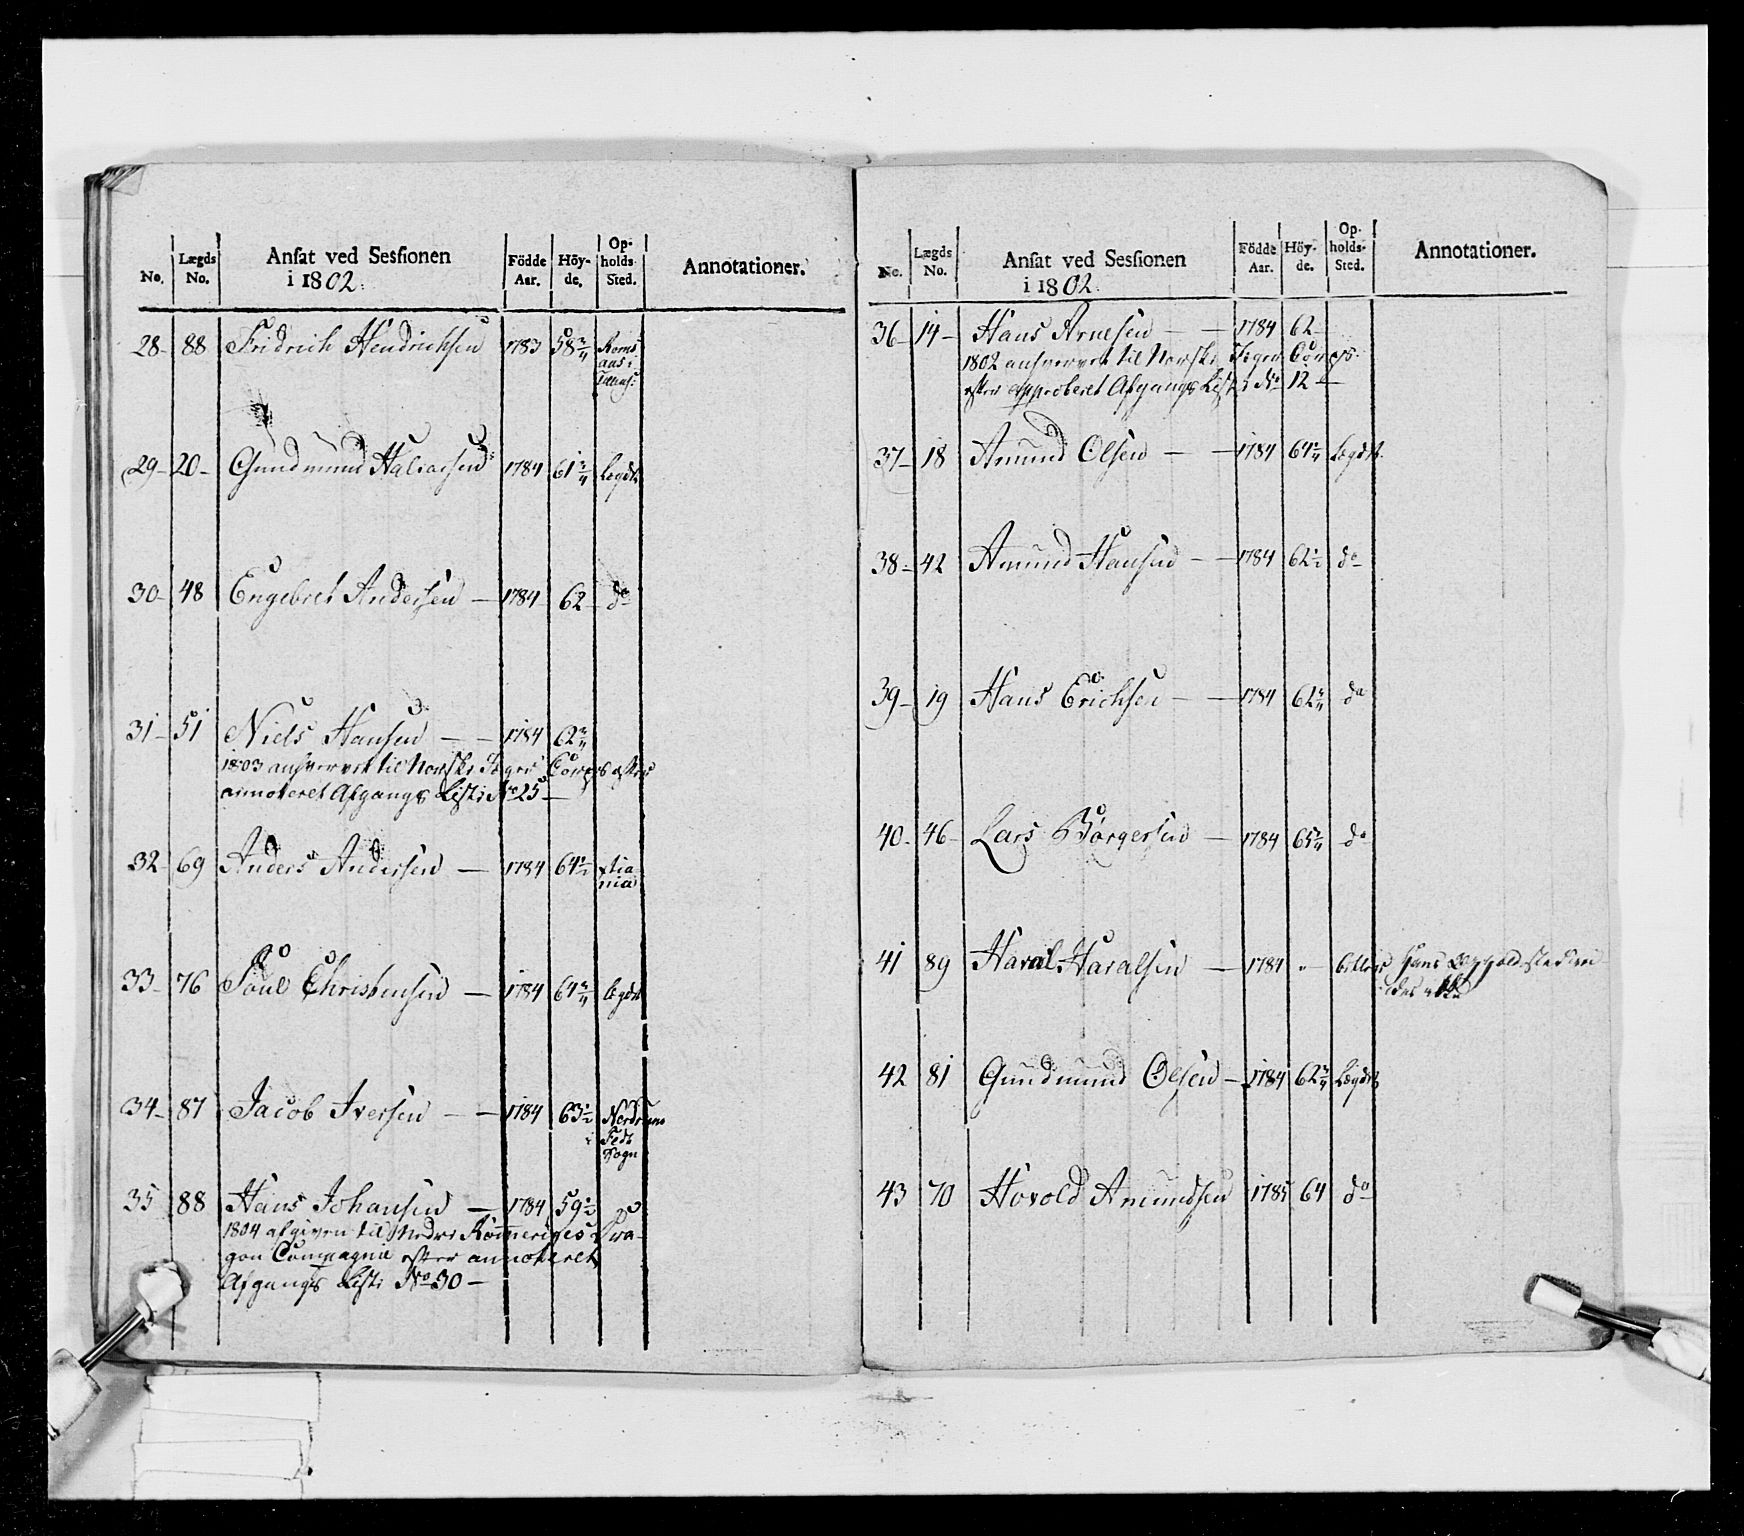 No. Lægds No. Ansat ved Sessionen i 1802. Födde Aar. Höyde. Opholds Sted. Annotationer.
28- 88 Fridrich Hendrichsen 1783 58 3/4
29- 20- Gundmund Halvorsen 1784 61 3/4 Legdet
30- 48 Engebret Andersen — 1784 62 do
31- 51 Niels Hansen — — 1784 62 3/4
1803 anhvervet til Norske Jæger Corps efter
annoteret Afgangs Liste No 25 —
32- 69 Anders Andersen — 1784 64 1/2 xtia
nia
33- 76 Poul Christensen — 1784 64 3/4 legdet
34- 87 Jacob Iversen — — 1784 63 1/2 Nordrums
i Feds
Sogn
35 88 Hans Johansen — 1784 59 1/2 do
1804 afgiven til Nedre Romeriges Dra-
gon Compagnie efter annoteret
Afgangs Liste No 30 —
No. Lægds No. Ansat ved Sessionen i 1802. Födde Aar. Höyde. Opholds Sted. Annotationer.
36- 14- Hans Arnesen — — 1784 62-
1802 anhvervet til Norske Jæger Corps
efter approberet Afgangs Liste No 12 —
37- 18 Amund Olsen — — 1784 64 Legdet
38- 42 Amund Hansen — — 1784 62 1/2 do
39- 19 Hans Erichsen — — 1784 62 3/4 do
40- 46- Lars Börgersen — 1784 65 do
41 89 Haral Haralsen — 1784 "
42 81 Gundmund Olsen — 1784 62 3/4 Legdet
43 70 Hovold Amundsen 1785 64 do